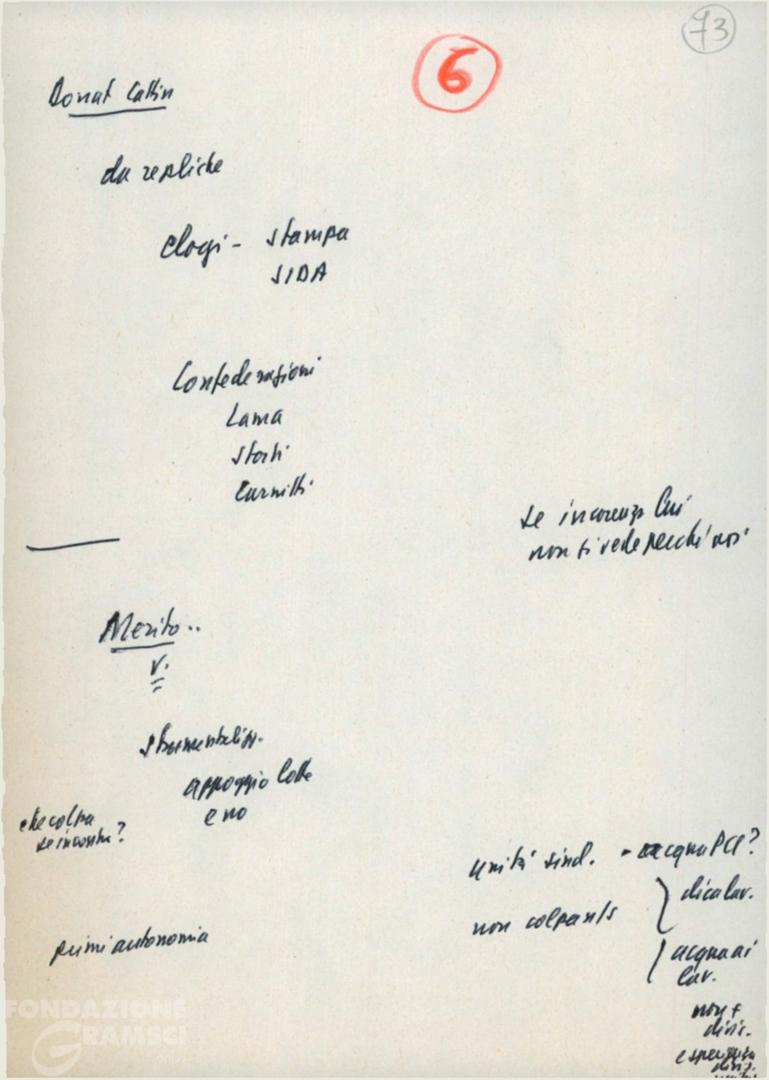 73
6
Donat Cattin
du repliche
elogi - stampa
SIDA
Confederazioni
Lama
Storti
Carniti
se incorenza lui
non si vede perché noi
Merito..
V.
strumentalizz.
appoggio lotte
e no
che colpa
se incontra?
primi autonomia
unità sind. - acqua PCI?
non colpants
di ca lav.
acqua ai
lav.
non +
divis.
esperienza
divis.
FONDAZIONE
GRAMSCI